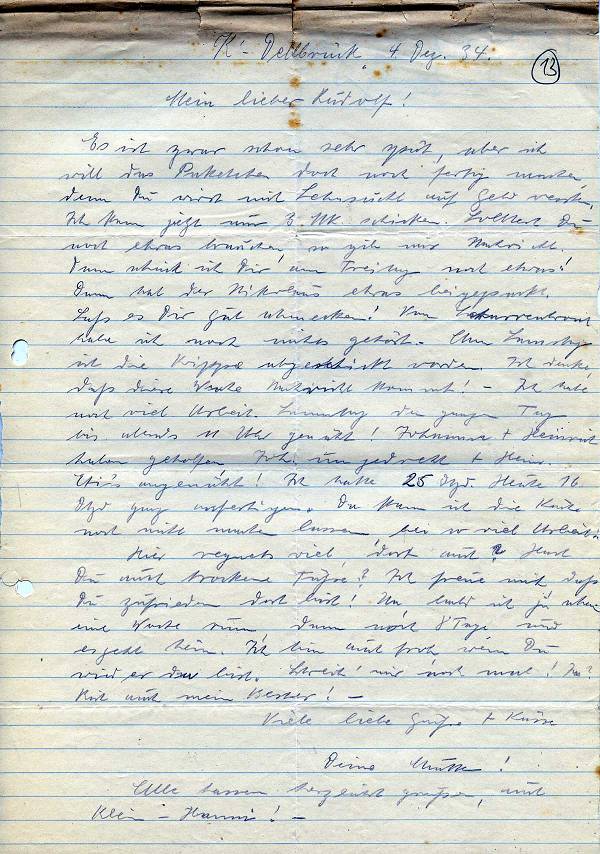 "K"- Dellbrück, 4. Dez. 34.
13
Mein lieber Rudolf!
Es ist zwar schon sehr spät, aber ich
will das Paketchen doch noch fertig machen,
denn Du wirst mit Sehnsucht auf Geld warten.
Ich kann jetzt nur 3 MK schicken. Solltest Du
noch etwas brauchen, so gib mir Nachricht.
Dann schick ich Dir am Freitag noch etwas!
Dann hat der Nikolaus etwas beigepackt.
Lass es Dir gut schmecken! Von
habe ich noch nichts gehört. Am Samstag
ist die Krippe abgeschickt worden. Ich denke,
daß diese Woche Nachricht kommt! - Ich habe
noch viel Arbeit. Samstag den ganzen Tag
bis abends 11 Uhr genäht! Johanna + Heinrich
haben geholfen. Joh. umgedreht + Heinr.
angenäht! Ich hatte 25 Dzd. Heute 16
Dzd ganz anfertigen. Da kann ich die Käthe
noch nicht machen lassen, bei so viel Arbeit!
Hier regnets viel, dort auch? Hast
Du auch trockene Füße? Ich freue mich daß
Du zufrieden dort bist! Na, bald ist ja schon
eine Woche rum, dann noch 8 Tage und
es geht heim. Ich bin auch froh wenn Du
wieder da bist. Schreib' mir noch mal! Ja?
Bist auch mein Bester! -
Viele liebe Grüße + Küsse
Deine Mutter!
Alle lassen herzlich grüßen, auch
Klein - Hanni! -